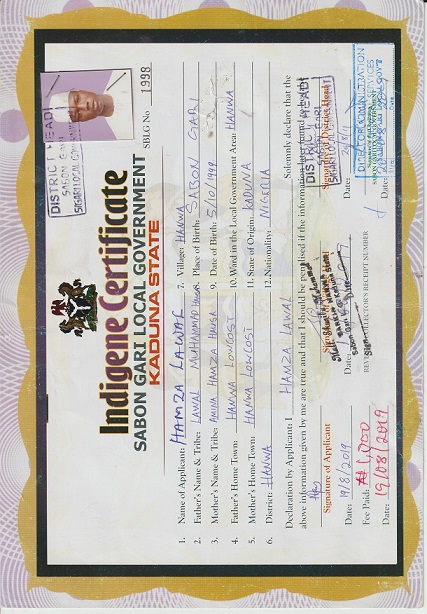 SBLG No 11998
DISTRICT HEAD
SABON GARI
SGARI LOCAL GOVERNMENT
Indigene Certificate
SABON GARI LOCAL GOVERNMENT
KADUNA STATE
1. Name of Applicant: HAMZA LAWAL 7. Village: HANWA
2. Father's Name & Tribe: LAWAL MUHAMMAD Place of Birth: SABON GARI
3. Mother's Name & Tribe: AMINA HAMZA HAUSA 9. Date of Birth: 5/10/1998
4. Father's Home Town: HANWA LOWCOST 10. Ward in the Local Government Area: HANWA
5. Mother's Home Town: HANWA LOWCOST 11. State of Origin: KADUNA
6. District: HANWA 12. Nationality: NIGERIA
Declaration by Applicant: I HAMZA LAWAL Solemnly declare that the
above information given by me are true and that I should be penalised if the information
DISTRICT HEAD
Signature of Applicant
Signature of District Head
Date: 19/8/2019
Date:
Date:
DIRECTOR ADMINISTRATION
Fee Paid: ₦1,000
REVENUE COLLECTOR'S RECEIPT NUMBER
Date: 19/08/2019
Date: